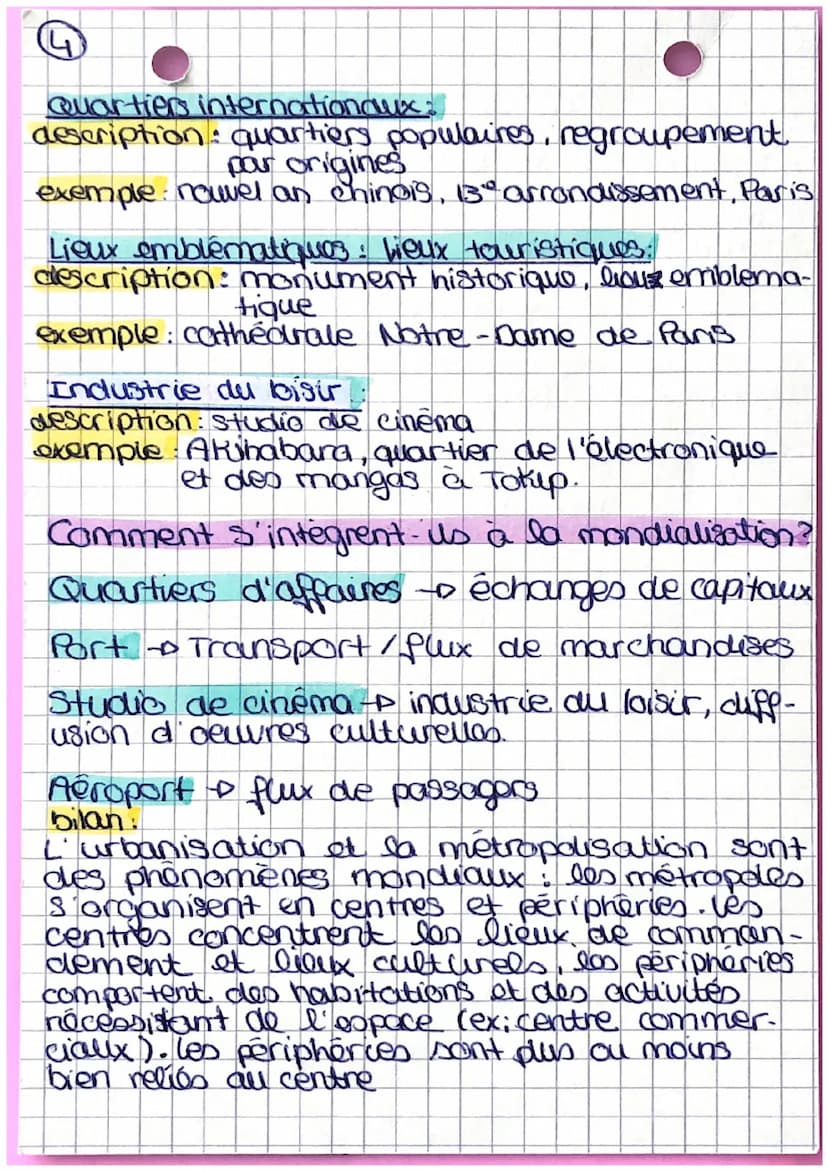 4
Quartiers internationaux :
description : quartiers populaires, regroupement
par origines
exemple : nouvel an chinois, 13e arrondissement, Paris
Lieux emblématiques : lieux touristiques :
description : monument historique, lieux emblema-
tique
exemple : cathédrale Notre-Dame de Paris
Industrie du loisir :
description : studio de cinéma
exemple : Akihabara, quartier de l'électronique
et des mangas à Tokyo.
Comment s'intègrent-ils à la mondialisation?
Quartiers d'affaires → échanges de capitaux
Port → Transport / flux de marchandises
Studio de cinéma → industrie du loisir, diff-
usion d'oeuvres culturelles.
Aéroport → flux de passagers
bilan :
L'urbanisation et la métropolisation sont
des phénomènes mondiaux : les métropoles
s'organisent en centres et périphéries. les
centres concentrent les lieux de comman-
dement et lieux culturels, les périphéries
comportent des habitations et des activités
nécessitant de l'espace (ex: centre commer-
ciaux). les périphéries sont plus ou moins
bien reliés au centre